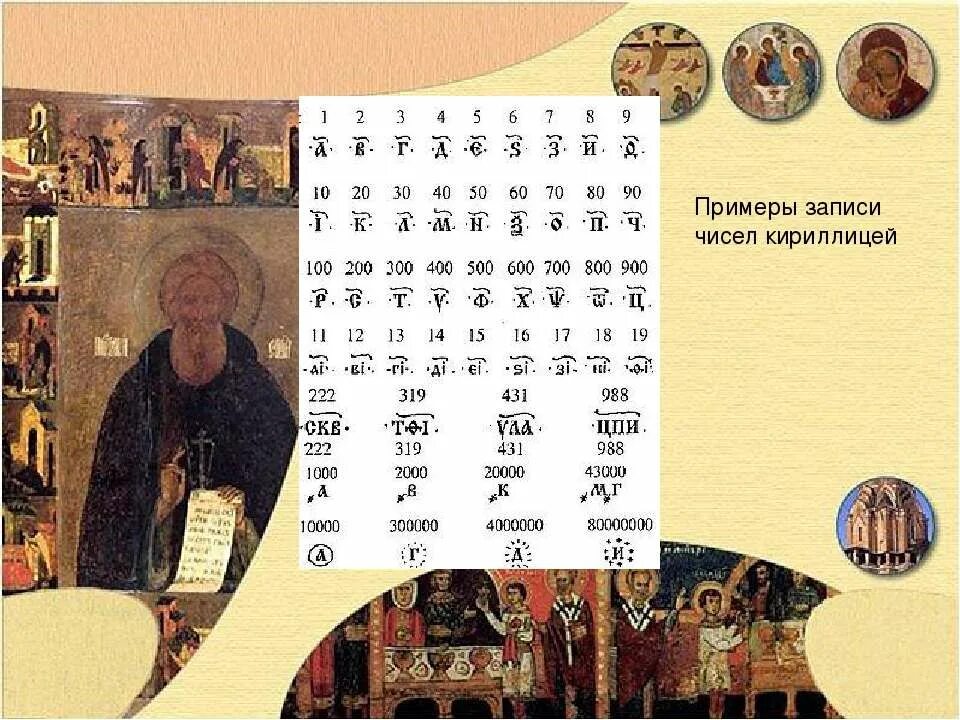 1 2 3 4 5 6 7 8 9
·А҃· ·В҃· ·Г҃· ·Д҃· ·Є҃· ·Ѕ҃· ·З҃· ·И҃· ·Ѳ҃·
10 20 30 40 50 60 70 80 90
·І҃· ·К҃· ·Л҃· ·М҃· ·Н҃· ·Ѯ҃· ·О҃· ·П҃· ·Ч҃·
100 200 300 400 500 600 700 800 900
·Р҃· ·С҃· ·Т҃· ·Ѵ҃· ·Ф҃· ·Х҃· ·Ѱ҃· ·Ѿ҃· ·Ц҃·
11 12 13 14 15 16 17 18 19
·аі҃· ·ві҃· ·гі҃· ·ді҃· ·єі҃· ·ѕі҃· ·зі҃· ·иі҃· ·ѳі҃·
222 319 431 988
·СКВ҃· ·ТѲІ҃ ѴЛА҃ ЦПИ҃
222 319 431 988
1000 2000 20000 43000
҂А ҂В ҂К ҂М҂Г
10000 300000 4000000 80000000
А Г Д И
Примеры записи
чисел кириллицей